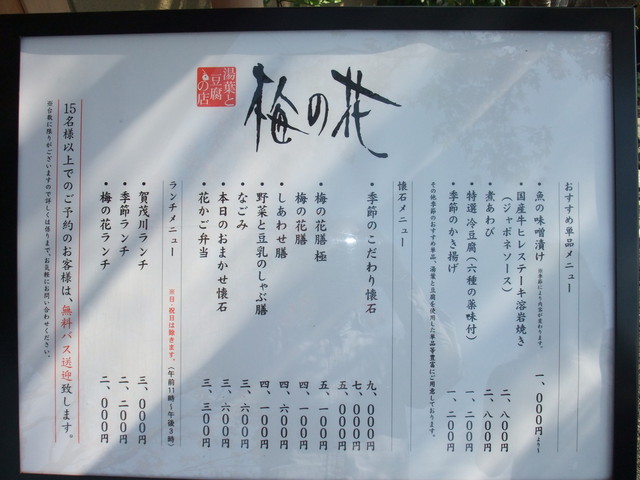 湯葉と
豆腐
の店
梅の花
おすすめ単品メニュー
・魚の味噌漬け ※季節により内容が変わります。 一、〇〇〇円より〜
・国産牛ヒレステーキ溶岩焼き
(ジャポネソース) 二、八〇〇円
・煮あわび 二、八〇〇円
・特選 冷豆腐(六種の薬味付) 一、二〇〇円
・季節のかき揚げ 一、二〇〇円
その他季節のおすすめ単品、湯葉と豆腐を使用した単品等豊富にご用意しております。
懐石メニュー
・季節のこだわり懐石 九、〇〇〇円
七、〇〇〇円
五、〇〇〇円
・梅の花膳 極 五、一〇〇円
・梅の花膳 四、一〇〇円
・しあわせ膳 四、六〇〇円
・野菜と豆乳のしゃぶ膳 四、一〇〇円
・なごみ 三、六〇〇円
・本日のおまかせ懐石 三、六〇〇円
・花かご弁当 三、三〇〇円
ランチメニュー ※日・祝日は除きます。(午前11時〜午後3時)
・賀茂川ランチ 三、〇〇〇円
・季節ランチ 二、二〇〇円
・梅の花ランチ 二、〇〇〇円
15名様以上でのご予約のお客様は、無料バス送迎致します。
※台数に限りがございますので詳しくは係りまで、お気軽にお問い合わせください。